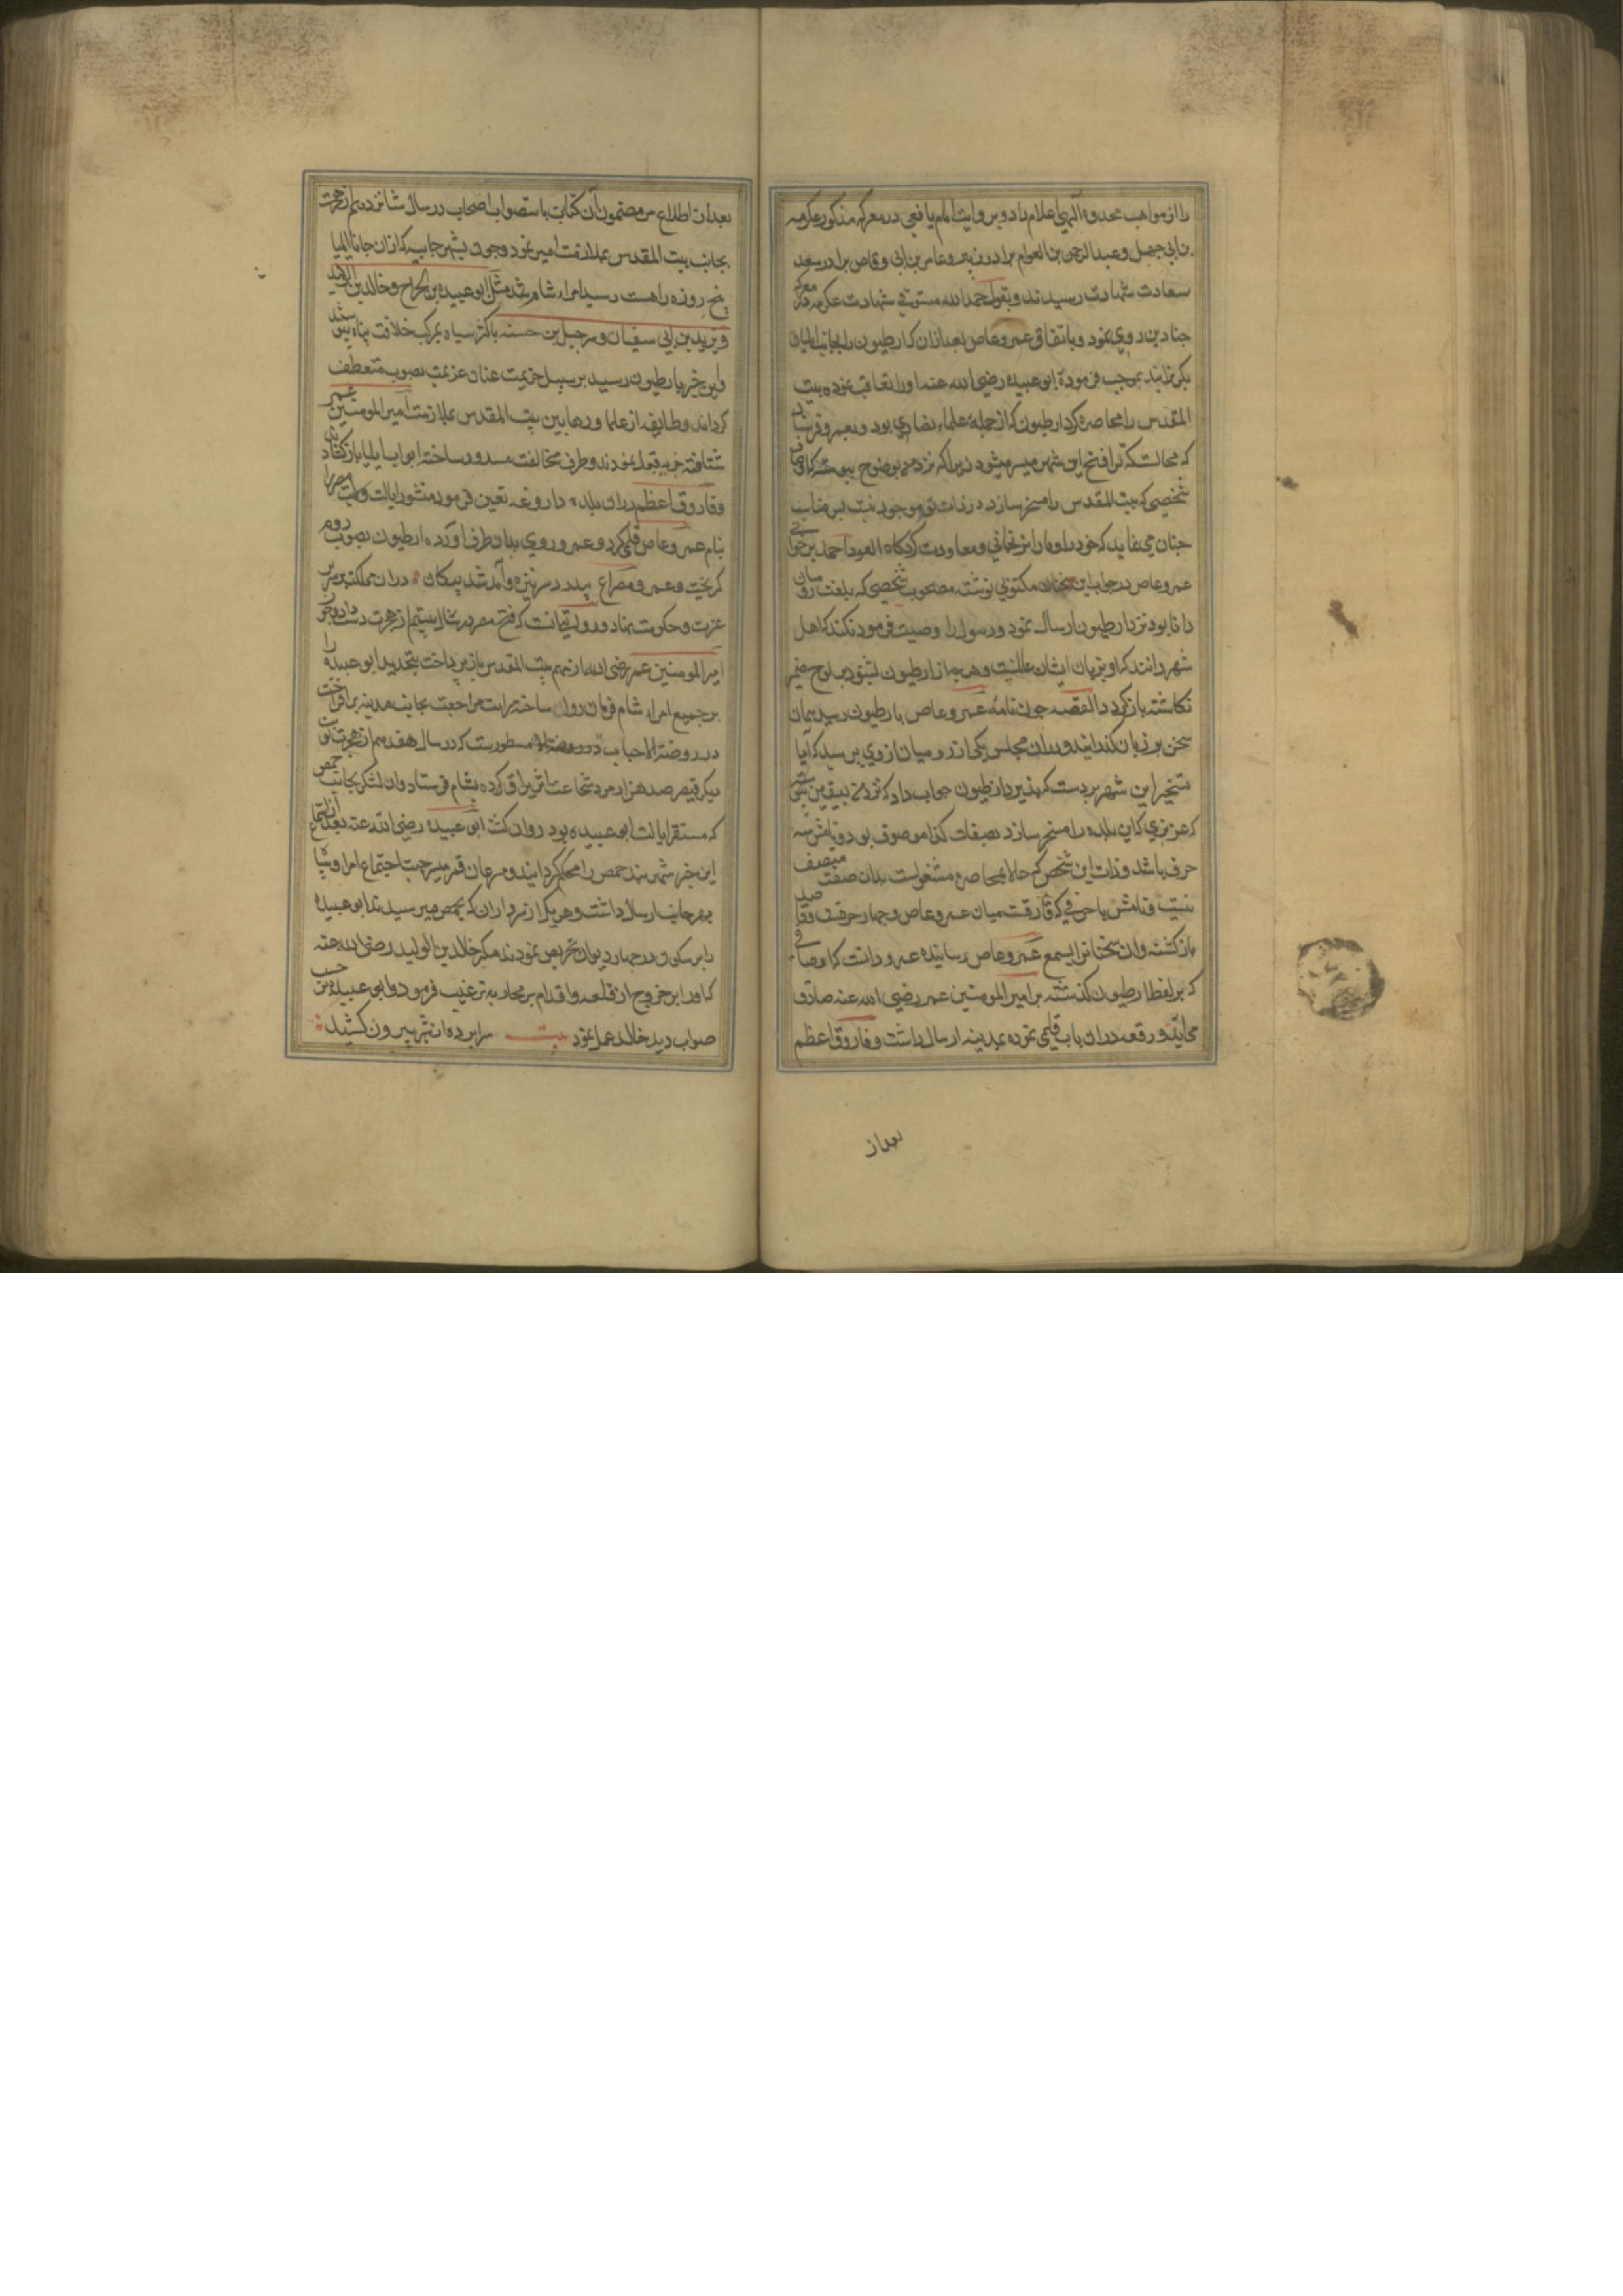 را از مواهب محدوه الهی اعلام داد و بروایت امام یافعی در معرکه مذکور عکرمه
بن ابی جهل و عبد الرحمن بن العوام برادر زبیر و عامر بن ابی وقاص برادر سعد
سعادت شهادت رسیدند و بقول حمد الله مستوفی شهادت عکرمه در معرکه
جنادین روی نمود و باتفاق عمرو عاص بعد از آن که ارطیون را بجانب ایلیا
بکریزانید بموجب فرمودۀ ابو عبیده رضی الله عنه او را تعاقب نموده بیت
المقدس را محاصره کرد ارطیون که از جمله علماء نصاری بود و بعمرو فرستاد
که محالست که ترا فتح این شهر میسر میشود زیرا که نزد من بوضوح پیوسته که اوصاف
شخصی که بیت المقدس را مسخر سازد در ذات تو موجود نیست پس مناسب
چنان می نماید که خود را و ما را نرنجانی و معاودت کرد که العود احمد برخوانی
عمرو عاص در جواب این سخنان مکتوبی نوشته مصحوب شخصی که بلغت رومیان
دانا بود نزد ارطیون ارسال نمود و رسول را وصیت فرمود نکند که اهل
شهر دانند که او بزبان ایشان عالمست و هر چه از ارطیون بشنود بر لوح ضمیر
نکاشته باز کردد القصه چون نامه عمرو عاص بارطیون رسید همان
سخن بر زبان کذرانید و در ان مجلس یکی از رومیان از وی پرسید که آیا
تسخیر این شهر بر دست که پذیرد ارطیون جواب داد که نزد من بیقین پیوسته
که عزیزی که این بلده را مسخر سازد بصفات کذا موصوف بود و نامش سه
حرف باشد و ذات این شخص که حالا بمحاصره مشغولست بدان صفت متصف
نیست و نامش با حرفی که فارقست میان عمرو عاص چهار حرفست و قاصد
باز کشته و ان سخنانرا بسمع عمرو عاص رسانیده عمرو دانست که اوصافی
که بر لفظ ارطیون کذشته بر امیر المومنین عمر رضی الله عنه صادق
می آید و رقعه در ان باب قلمی نموده بمدینه ارسال داشت و فاروق اعظم
بعد از
بعد از اطلاع بر مضمون آن کتابت باستصواب اصحاب در سال شانزدهم از هجرت
بجانب بیت المقدس نمود و چون بشهر جابیه که از ان جا تا ایلیا
پنج روزه راهست رسید امراء شام مثل ابو عبیده بن الجراح و خالد بن الولید
و یزید بن ابی سفیان و شرحبیل بن حسنه با کثر سپاه بمرکب خلافت پناه پیوستند
و این خبر بارطیون رسید بر سبیل هزیمت عنان عزیمت بصوب منعطف
کردانید و طایفه از علما و رهابین بیت المقدس بملازمت امیر المومنین عمر
شتافته جزیه قبول نمودند و طرف مخالفت مسدود ساخته ابواب ایلیا باز کشادند
و فاروق اعظم در ان بلده داروغه تعین فرموده منشور ایالت ولایت مصر را
بنام عمرو عاص قلمی کرد و عمرو روی بدان طرف آورده ارطیون بصوب روم
کریخت و عمرو مصراع بپدر در سر نیزه و آمد شد پیکان در ان مملکت بر سریر
عزت و حکومت بنهاد و روایتی آنست که فتح مصر در سال بیستم از هجرت دست داد و چون
امیر المومنین عمر رضی الله از مهم بیت المقدس باز پرداخت بتجدید ابو عبیده را
بر جمیع امراء شام فرمان روان ساخته رایت مراجعت بجانب مدینه برافراخت
در روضة الاحباب مسطورست که در سال هفدهم از هجرت نوبت
دیکر قیصر صد هزار مرد شجاعت اثر یراق کرده بشام فرستاد و ان لشکر بجانب حمص
که مستقر ایالت ابو عبیده بود روان کشت ابی عبیده رضی الله عنه بعد از استماع
این خبر شهر بند حمص را محکم کردانید و مسرعان قمر مسیر جهت اجتماع امرا و سپاه
بهر جانب ارسال داشت و هر یک از سرداران که بحمص میرسیدند ابو عبیده
را بر سکون در چهار دیوار تحریص نمودند مکر خالد بن الولید رضی الله عنه
که او را بر خروج از قلعه و اقدام بر محاربه ترغیب فرمود و ابو عبیده بر حسب
صواب دید خالد عمل نمود بیت سرا پرده از شهر بیرون کشید